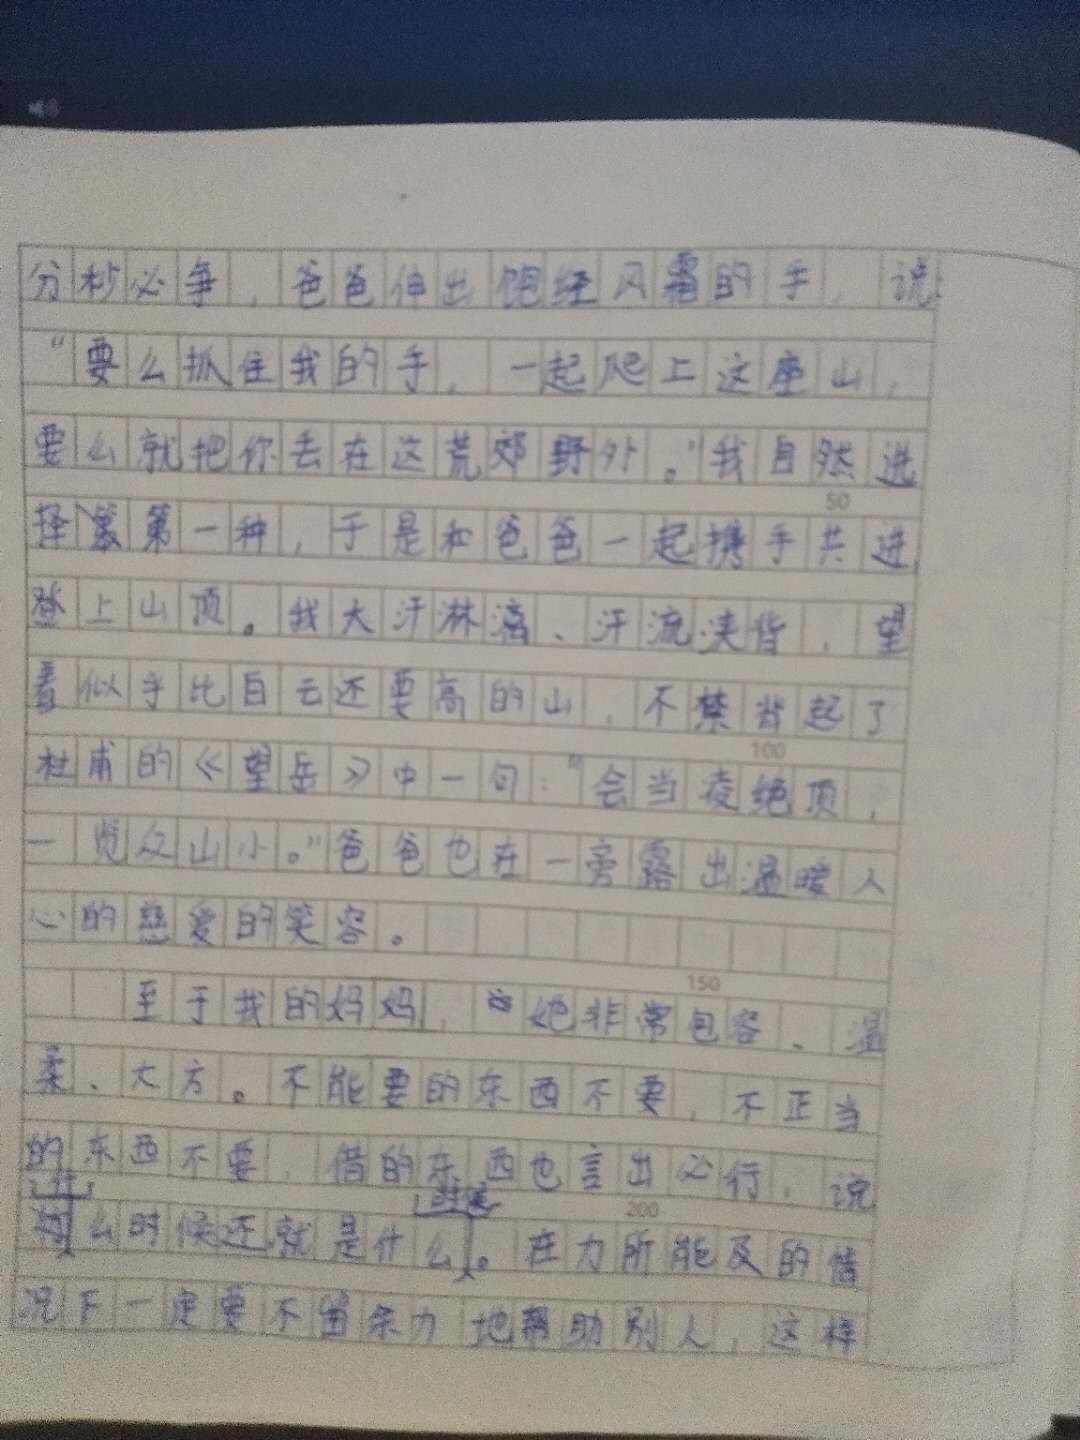 分秒必争，爸爸伸出饱经风霜的手，说：
“要么抓住我的手，一起爬上这座山，
要么就把你丢在这荒郊野外。”我自然选
50
择第一种，于是和爸爸一起携手共进
登上山顶。我大汗淋漓、汗流浃背，望
着似乎比白云还要高的山，不禁背起了
100
杜甫的《望岳》中一句：“会当凌绝顶，
一览众山小。”爸爸也在一旁露出温暖人
心的慈爱的笑容。
150
至于我的妈妈，她非常包容、温
柔、大方。不能要的东西不要，不正当
的东西不要，借的东西也言出必行，说
什 时候
200
么时候还就是什么。在力所能及的情
况下一定要不留余力地帮助别人，这样